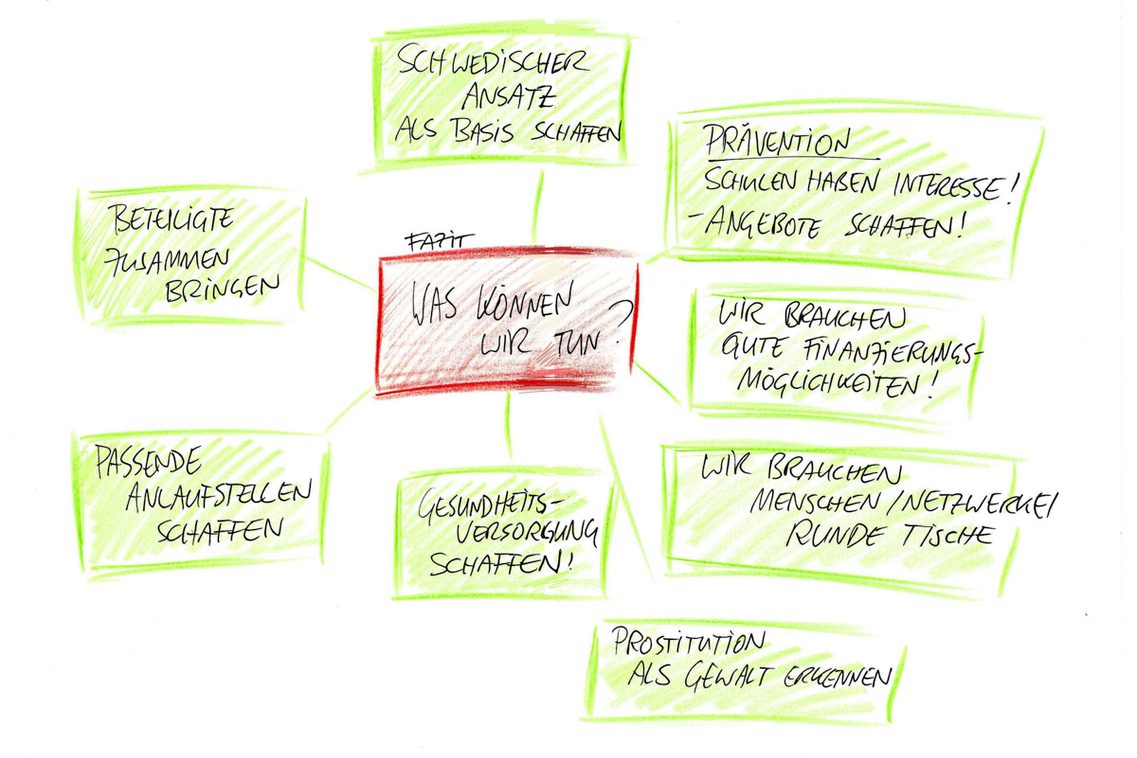 SCHWEDISCHER
ANSATZ
ALS BASIS SCHAFFEN
PRÄVENTION
SCHULEN HABEN INTERESSE!
- ANGEBOTE SCHAFFEN!
BETEILIGTE
ZUSAMMEN
BRINGEN
FAZIT
WAS KÖNNEN
WIR TUN?
WIR BRAUCHEN
GUTE FINANZIERUNGS-
MÖGLICHKEITEN!
PASSENDE
ANLAUFSTELLEN
SCHAFFEN
GESUNDHEITS-
VERSORGUNG
SCHAFFEN!
WIR BRAUCHEN
MENSCHEN/NETZWERKE/
RUNDE TISCHE
PROSTITUTION
ALS GEWALT ERKENNEN